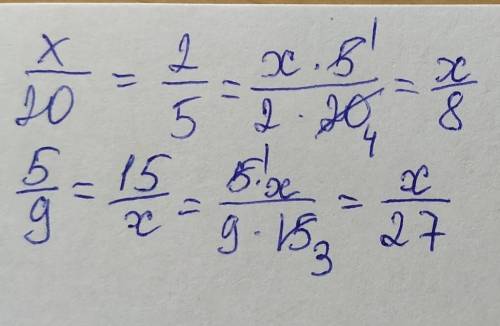 x/20 = 2/5 = x · 5 1/2 · 20 4 = x/8
5/9 = 15/x = 5 1 · x/9 · 15 3 = x/27